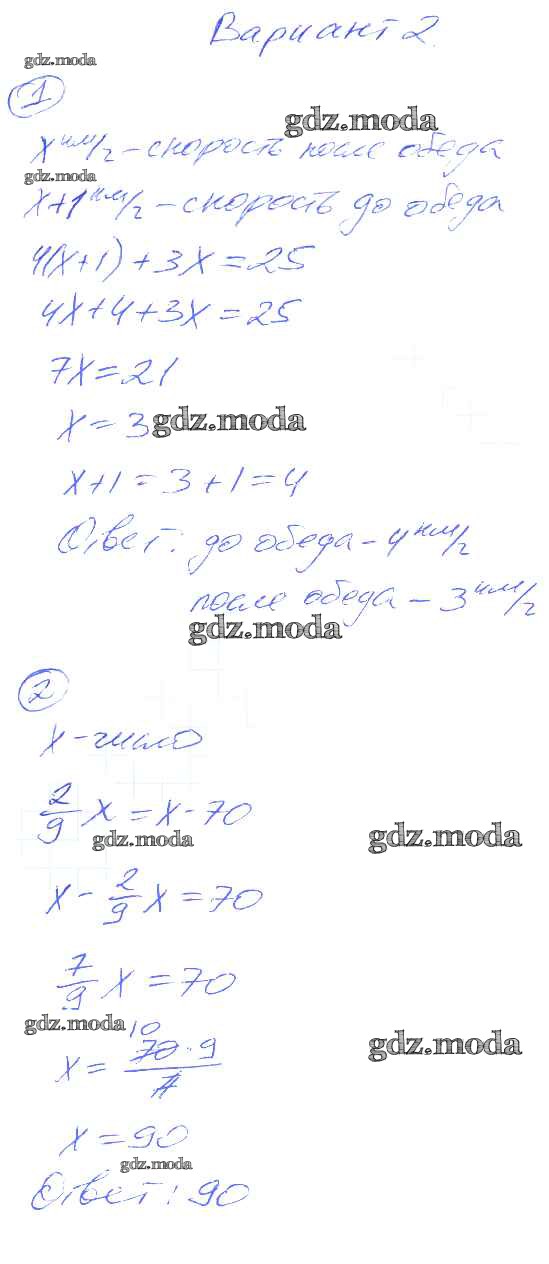 Вариант 2.
gdz.moda
1
gdz.moda
x км/ч – скорость после обеда
gdz.moda
x+1 км/ч – скорость до обеда
4(x+1)+3x=25
4x+4+3x=25
7x=21
x=3
gdz.moda
x+1=3+1=4
Ответ: до обеда – 4 км/ч
после обеда – 3 км/ч
gdz.moda
2
x – число
2/9 x = x - 70
gdz.moda
gdz.moda
x - 2/9 x = 70
7/9 x = 70
gdz.moda
gdz.moda
x = 70·9/7 10
x = 90
gdz.moda
Ответ: 90